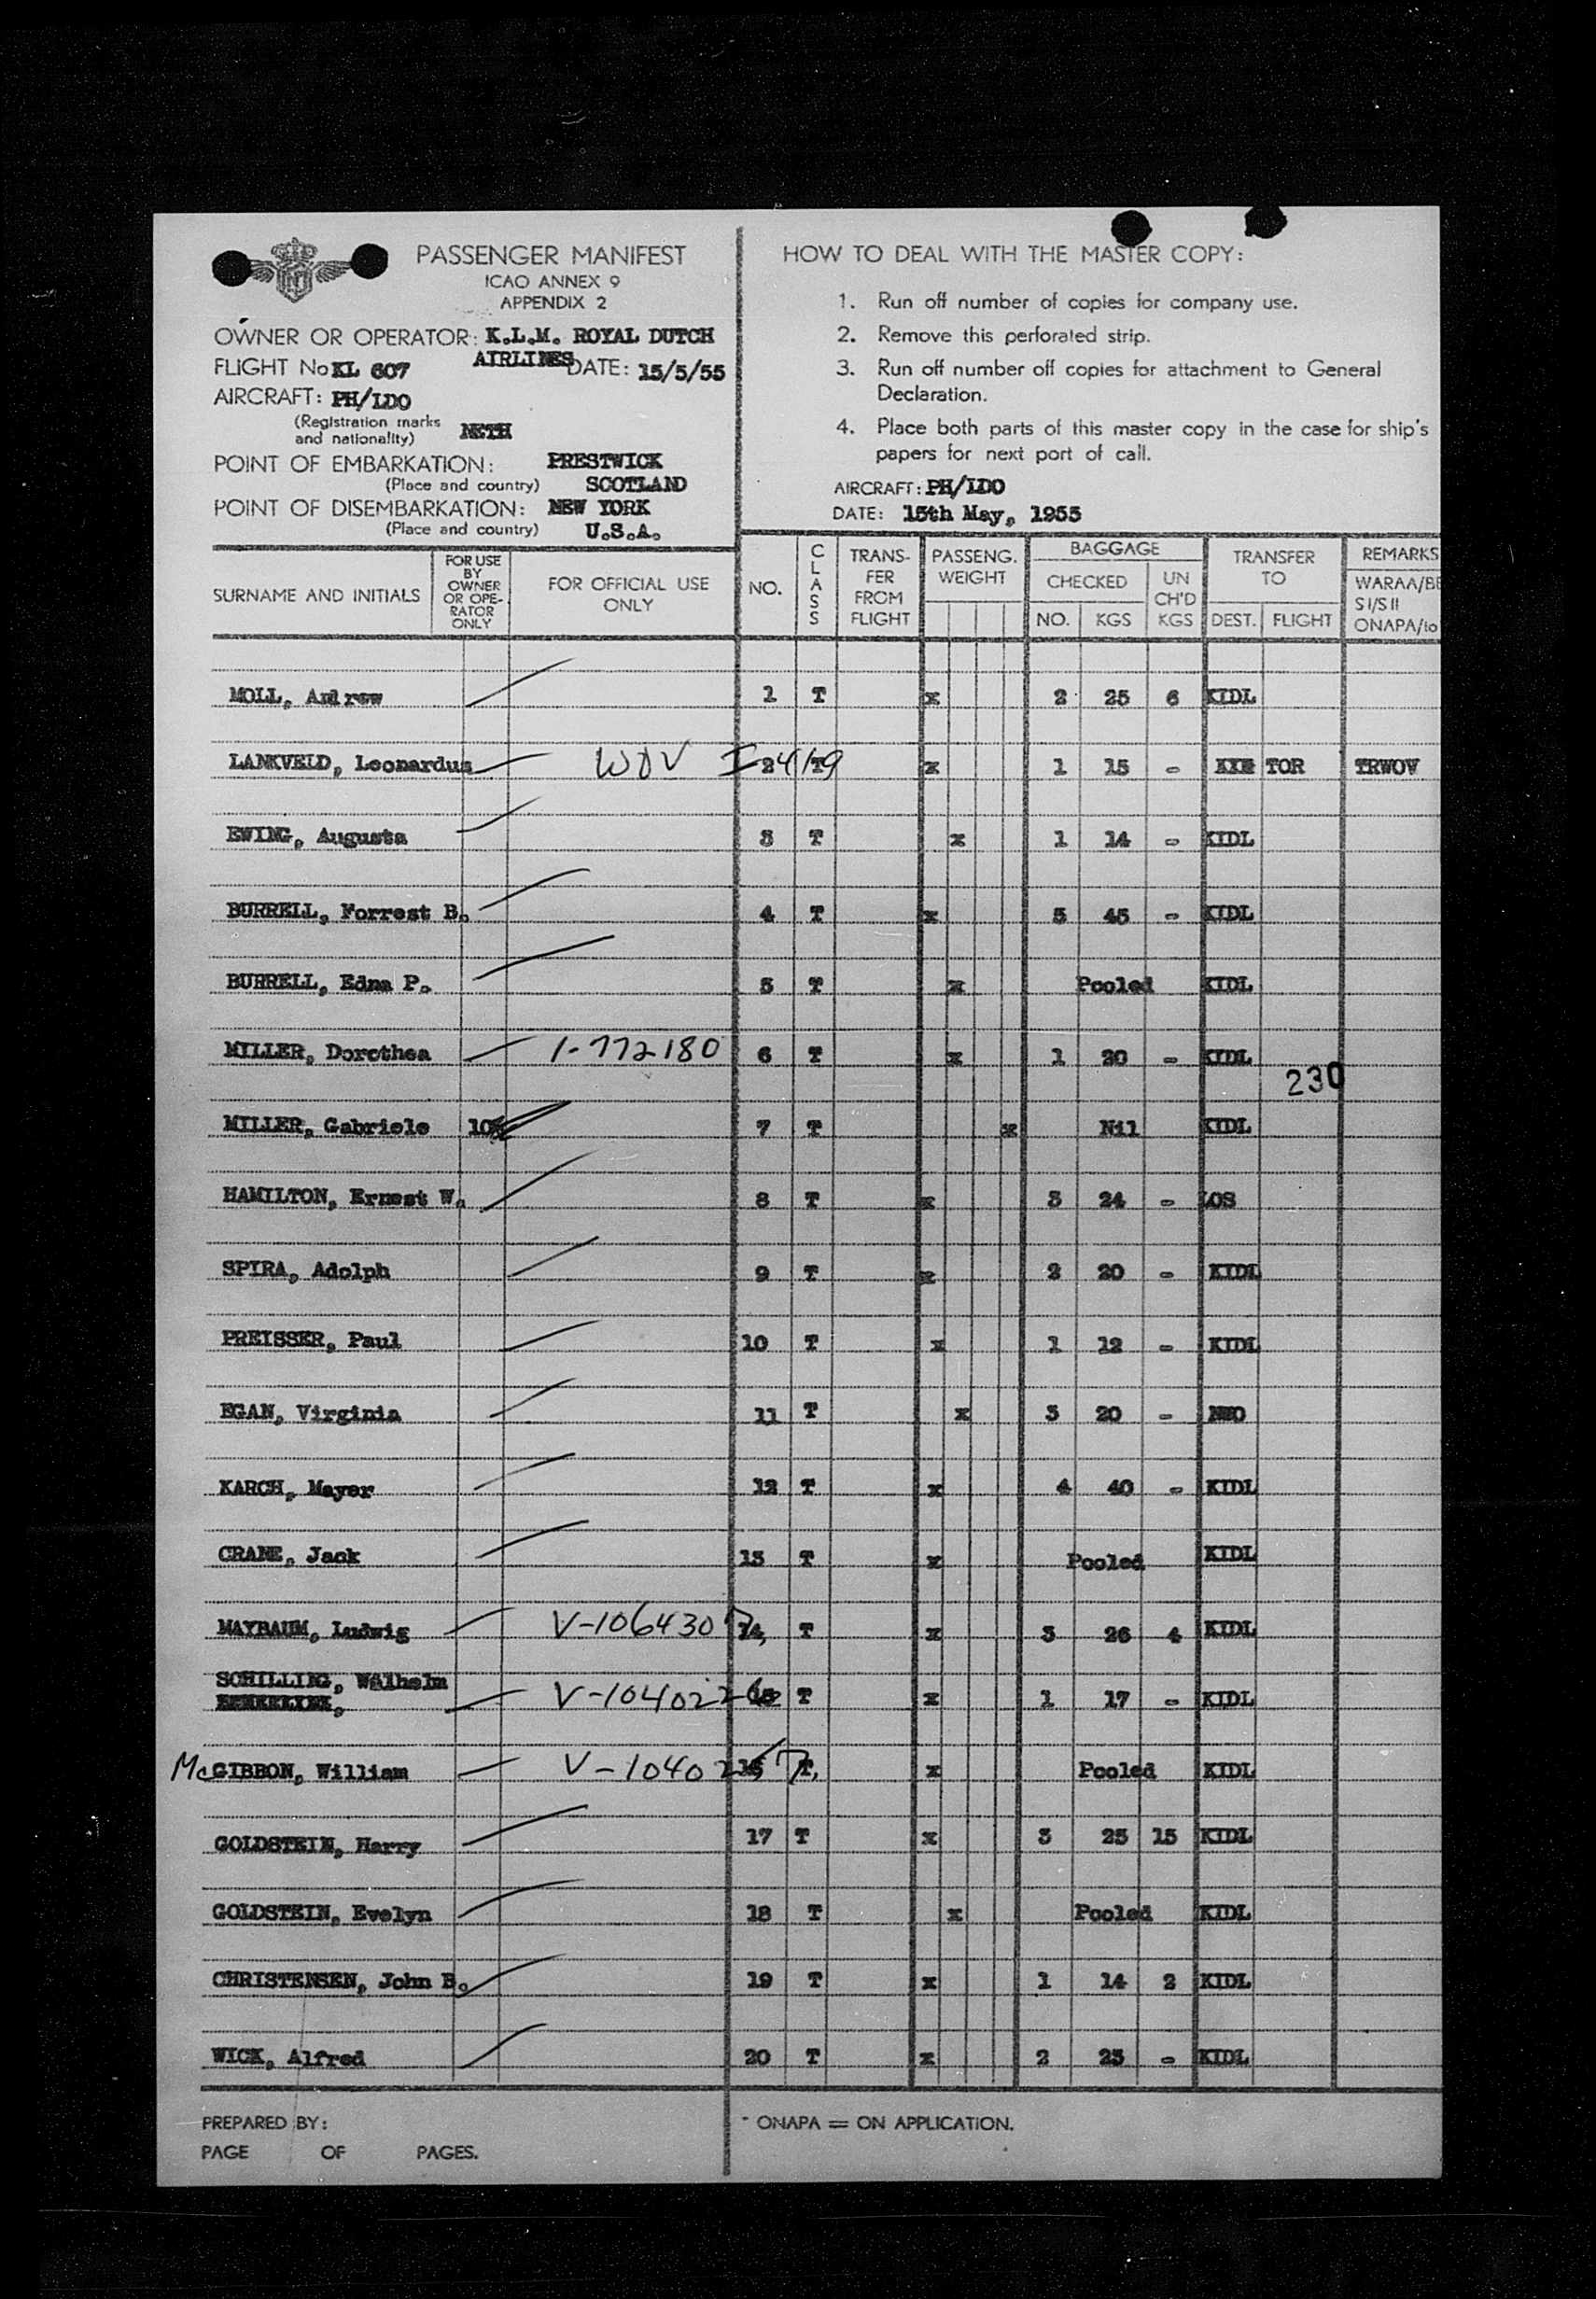 PASSENGER MANIFEST
ICAO ANNEX 9
APPENDIX 2
OWNER OR OPERATOR: K.L.M. ROYAL DUTCH
AIRLINES
FLIGHT No KL 607 DATE: 15/5/55
AIRCRAFT: PH/LDO
(Registration marks
and nationality) NETH
POINT OF EMBARKATION: PRESTWICK
(Place and country) SCOTLAND
POINT OF DISEMBARKATION: NEW YORK
(Place and country) U.S.A.
HOW TO DEAL WITH THE MASTER COPY:
1. Run off number of copies for company use.
2. Remove this perforated strip.
3. Run off number off copies for attachment to General
Declaration.
4. Place both parts of this master copy in the case for ship's
papers for next port of call.
AIRCRAFT: PH/LDO
DATE: 15th May, 1955
SURNAME AND INITIALS
FOR USE
BY
OWNER
OR OPE-
RATOR
ONLY
FOR OFFICIAL USE
ONLY
NO.
CLASS
TRANS-
FER
FROM
FLIGHT
PASSENG.
WEIGHT
BAGGAGE
CHECKED
NO. KGS
UN
CH'D
KGS
TRANSFER
TO
DEST. FLIGHT
REMARKS
WARAA/BE
SI/SII
ONAPA/to
MOLL, Andrew 1 T x 2 25 6 KIDL
LANKVELD, Leonardus WOV I-419 2 T x 1 15 - TOR TRWOV
EWING, Augusta 3 T x 1 14 - KIDL
BURRELL, Forrest B. 4 T x 5 45 - KIDL
BURRELL, Edna P. 5 T x Pooled KIDL
MILLER, Dorothea 1-772180 6 T x 1 20 - KIDL
230
MILLER, Gabriele 10% 7 T x Nil KIDL
HAMILTON, Ernest W. 8 T x 3 24 - LOS
SPIRA, Adolph 9 T x 2 20 - KIDL
PREISSER, Paul 10 T x 1 12 - KIDL
EGAN, Virginia 11 T x 3 20 -
KARCH, Mayer 12 T x 4 40 - KIDL
CRANE, Jack 13 T x Pooled KIDL
MAYBAUM, Ludwig V-1064307 14 T x 3 26 4 KIDL
SCHILLING, Wilhelm
V-1040226 15 T x 1 17 - KIDL
McGIBBON, William V-1040257 16 T x Pooled KIDL
GOLDSTEIN, Harry 17 T x 3 25 15 KIDL
GOLDSTEIN, Evelyn 18 T x Pooled KIDL
CHRISTENSEN, John B. 19 T x 1 14 2 KIDL
WICK, Alfred 20 T x 2 25 - KIDL
PREPARED BY:
PAGE OF PAGES.
- ONAPA = ON APPLICATION.